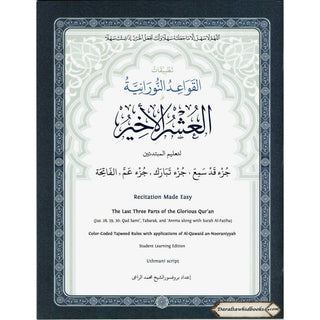 اللهم لا سهل إلا ما جعلته سهلا وأنت تجعل الحزن إذا شئت سهلا
تطبيقات
القواعد النورانية
العشر الأخير
لتعليم المبتدئين
جزء قد سمع، جزء تبارك، جزء عم، الفاتحة
Recitation Made Easy
The Last Three Parts of the Glorious Qur'an
(Juz. 28, 29, 30: Qad Sami', Tabarak, and 'Amma along with Surah Al-Fatiha)
Color-Coded Tajweed Rules with applications of Al-Qawaid an-Nooraniyyah
Student Learning Edition
Uthmani script
إعداد بروفسور الشيخ محمد الراعي
Darultawhidbooks.com